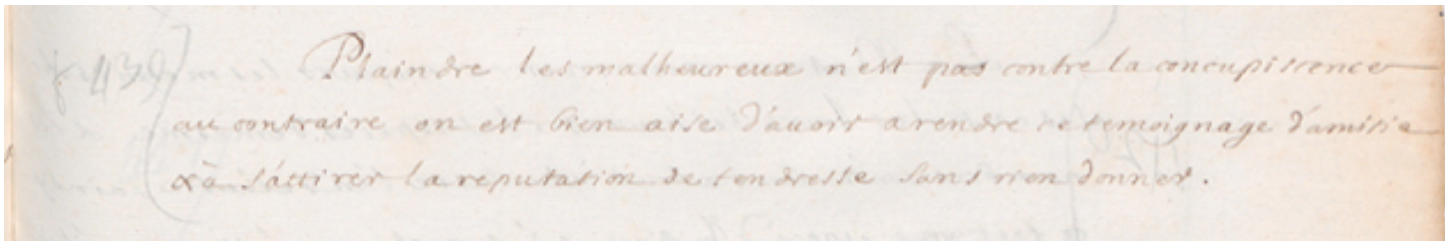 f. 439 Plaindre les malheureux n'est pas contre la concupiscence
au contraire on est bien aise d'avoir a rendre ce temoignage d'amitie
& à s'attirer la reputation de tendresse sans rien donner.